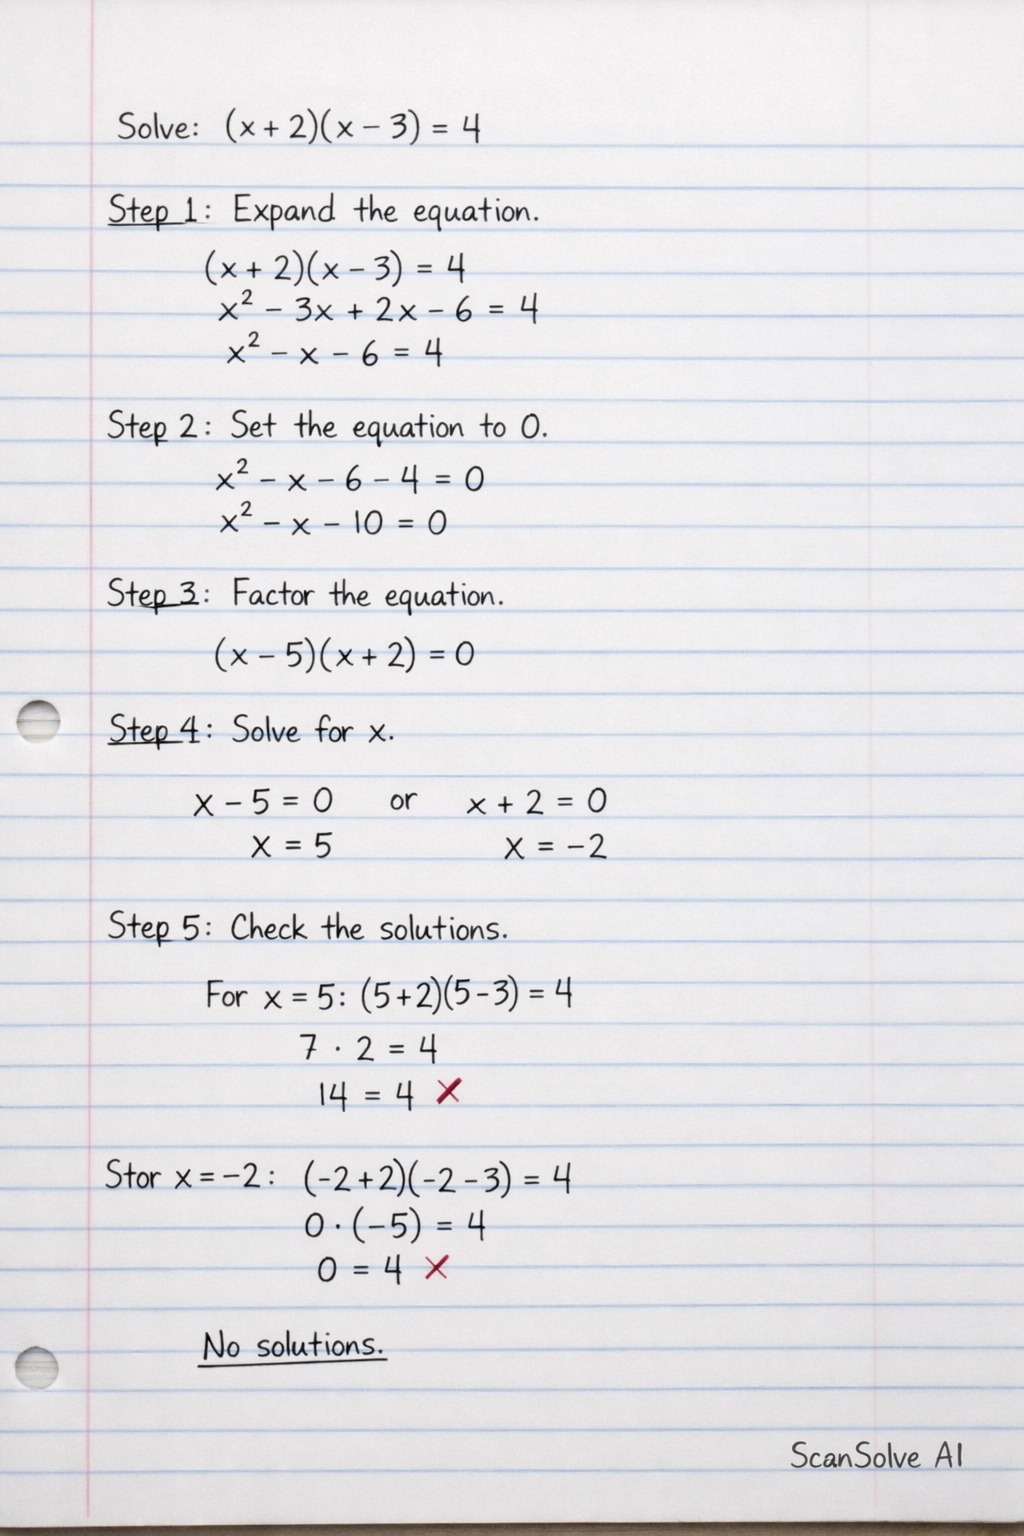 Solve: (x + 2)(x − 3) = 4
Step 1: Expand the equation.
(x + 2)(x − 3) = 4
x² − 3x + 2x − 6 = 4
x² − x − 6 = 4
Step 2: Set the equation to 0.
x² − x − 6 − 4 = 0
x² − x − 10 = 0
Step 3: Factor the equation.
(x − 5)(x + 2) = 0
Step 4: Solve for x.
x − 5 = 0 or x + 2 = 0
x = 5 x = −2
Step 5: Check the solutions.
For x = 5: (5+2)(5−3) = 4
7 · 2 = 4
14 = 4 ✗
Stor x = −2: (−2+2)(−2−3) = 4
0 · (−5) = 4
0 = 4 ✗
No solutions.
ScanSolve AI